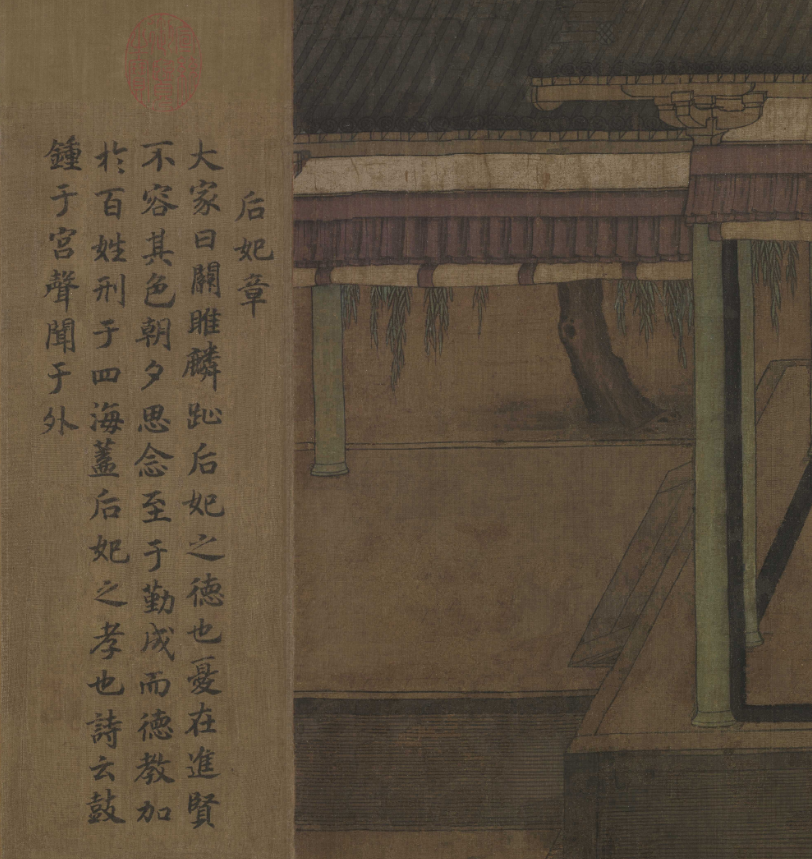 后妃章
大家曰關雎麟趾后妃之德也憂在進賢
不容其色朝夕思念至于勤成而德教加
於百姓刑于四海蓋后妃之孝也詩云鼓
鍾于宮聲聞于外